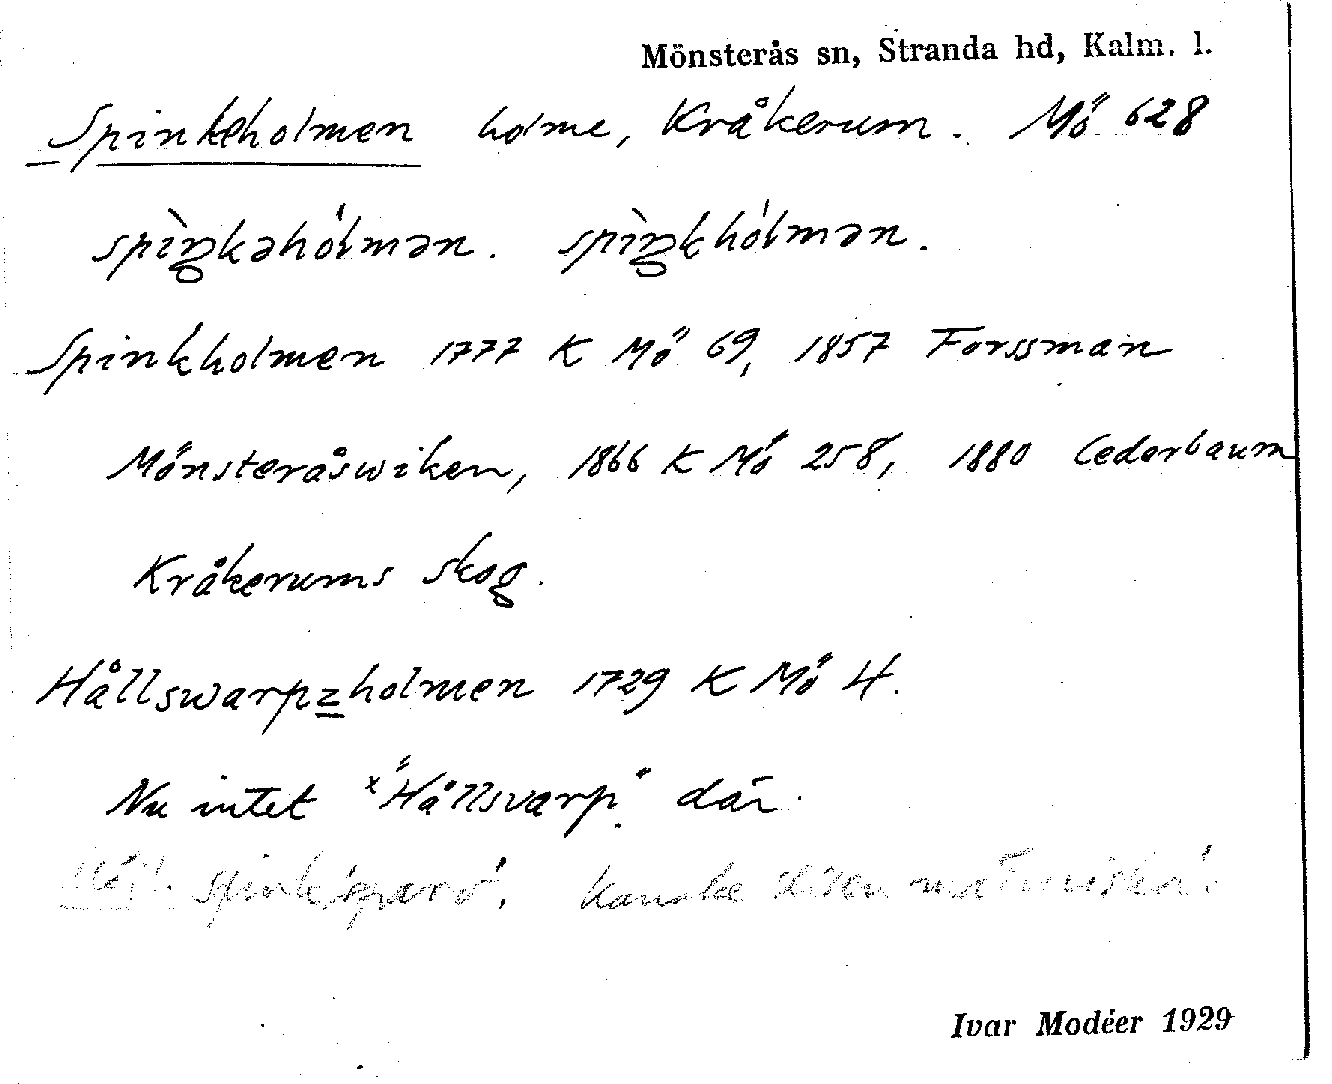 Mönsterås sn, Stranda hd, Kalm. l.
Spinkeholmen holme, Kråkerum. Mö 628
spìŋkəhólmən. spìŋkhólmən.
Spinkholmen 1777 K Mö 69, 1857 Forssman
Mönsteråswiken, 1866 K Mö 258, 1880 Cederbaum
Kråkerums skog.
Hållswarpzholmen 1729 K Mö 4.
Nu intet ˣ"Hållsvarp" där.
kanske liten
Ivar Modéer 1929